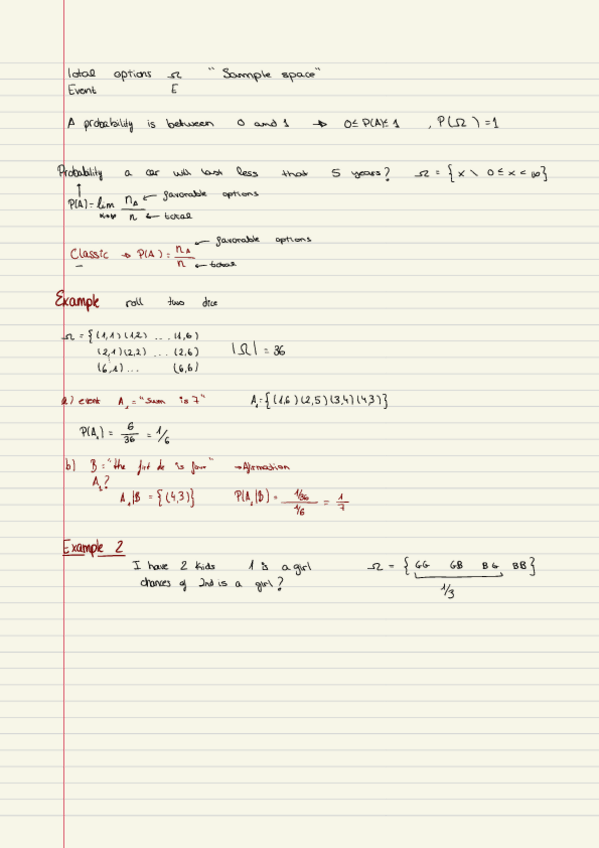 Total options Ω "Sample space"
Event E
A probability is between 0 and 1 → 0≤ P(A)≤ 1 , P(Ω)=1
Probability a car will last less that 5 years? Ω = {x \ 0 ≤ x < ∞}
P(A)= lim n→∞ nA/n ← favorable options ← total
Classic → P(A) = nA/n ← favorable options ← total
Example roll two dice
Ω = {(1,1)(1,2) ... (1,6)
(2,1)(2,2) ... (2,6) |Ω| = 36
(6,1) ... (6,6)
a) event A₁="sum is 7" A₁={(1,6)(2,5)(3,4)(4,3)}
P(A₁) = 6/36 = 1/6
b) B="the first die is four" → Afirmation
A₁?
A₁|B = {(4,3)} P(A₁|B) = 1/36 / 1/6 = 1/7
Example 2
I have 2 kids 1 is a girl Ω = {GG GB BG BB}
chances of 2nd is a girl? 1/3